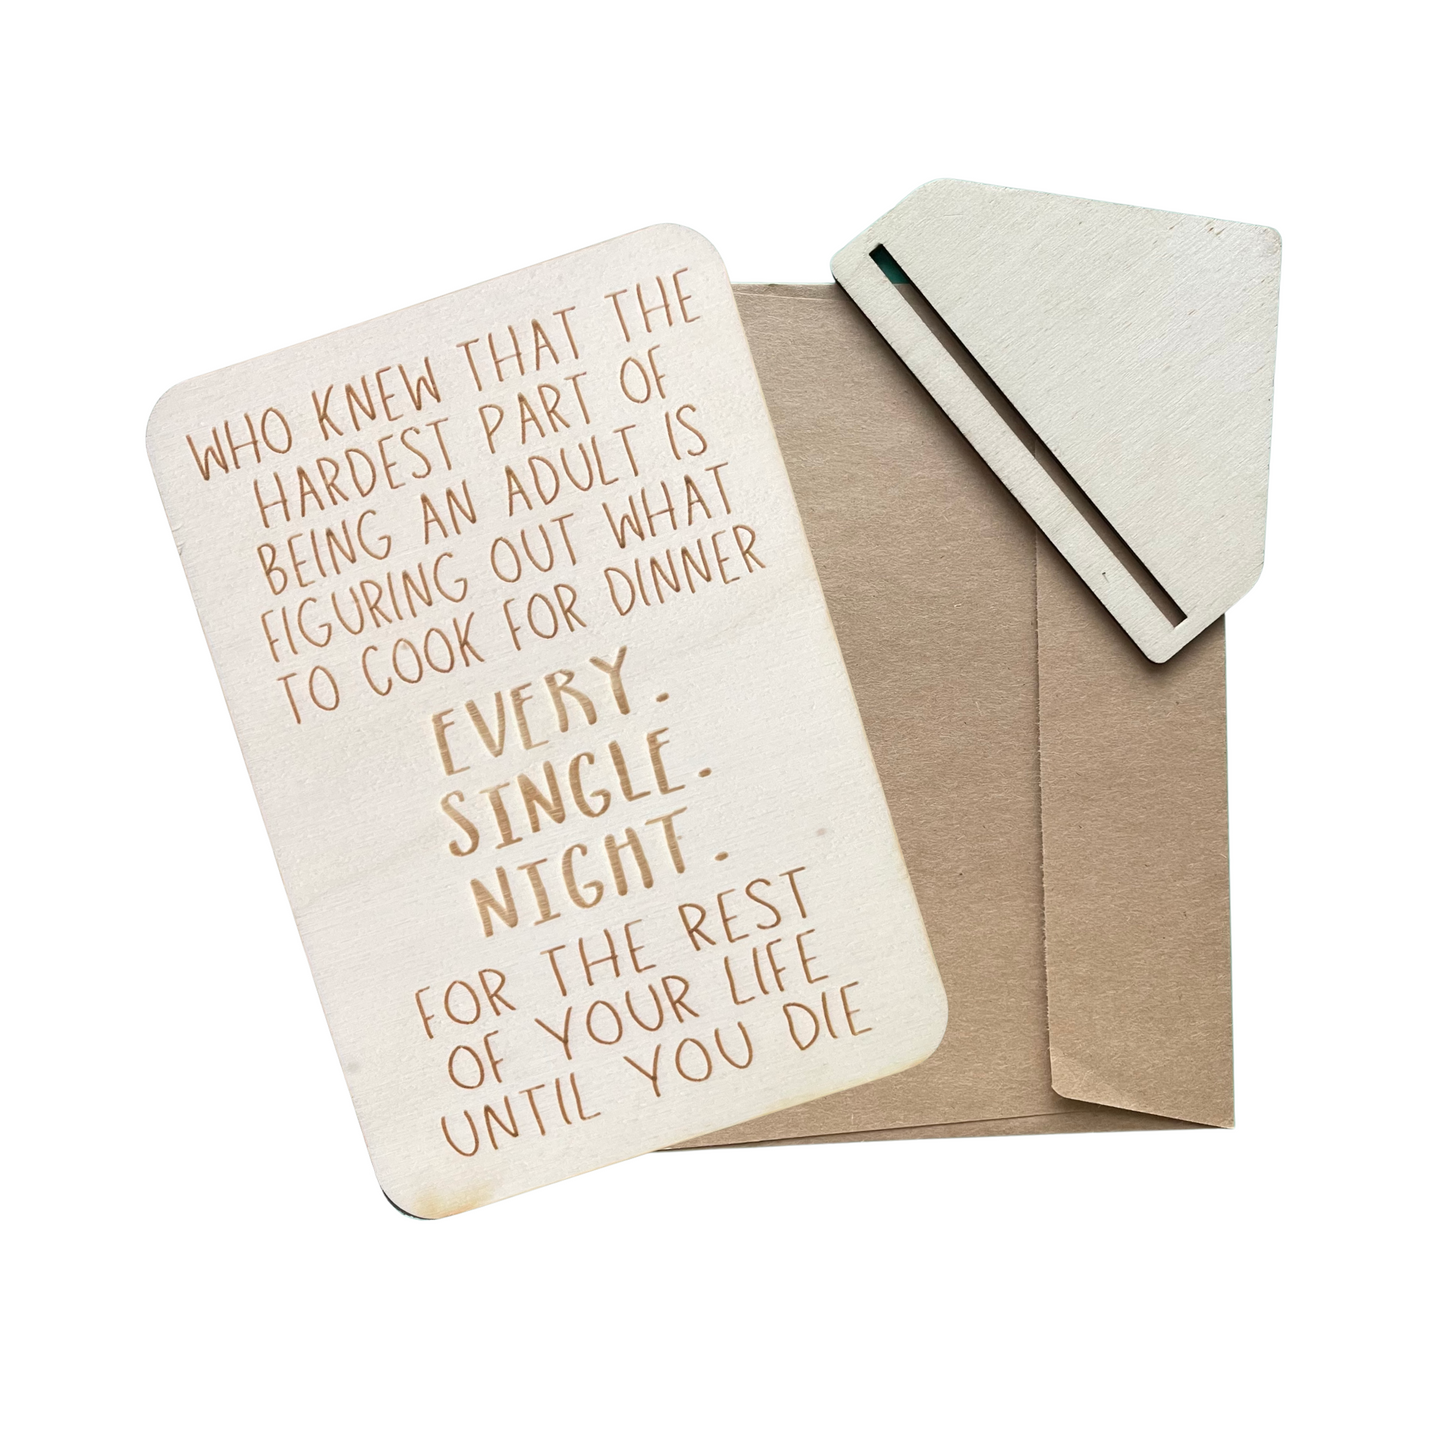 WHO KNEW THAT THE
HARDEST PART OF
BEING AN ADULT IS
FIGURING OUT WHAT
TO COOK FOR DINNER
EVERY.
SINGLE.
NIGHT.
FOR THE REST
OF YOUR LIFE
UNTIL YOU DIE